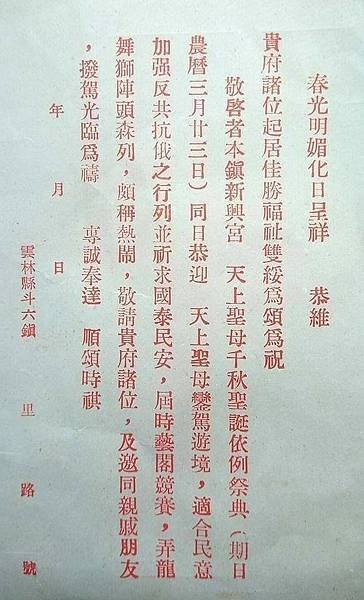 春光明媚化日呈祥　恭維
貴府諸位起居佳勝福祉雙綏爲頌爲祝
敬啓者本鎮新興宮　天上聖母千秋聖誕依例祭典（期日
農曆三月廿三日）同日恭迎　天上聖母鑾駕遊境，適合民意
加强反共抗俄之行列並祈求國泰民安，屆時藝閣競賽，弄龍
舞獅陣頭森列，頗稱熱鬧，敬請貴府諸位，及邀同親戚朋友
，撥駕光臨爲禱　專誠奉達　順頌時祺
年　月　日
雲林縣斗六鎮　里　路　號